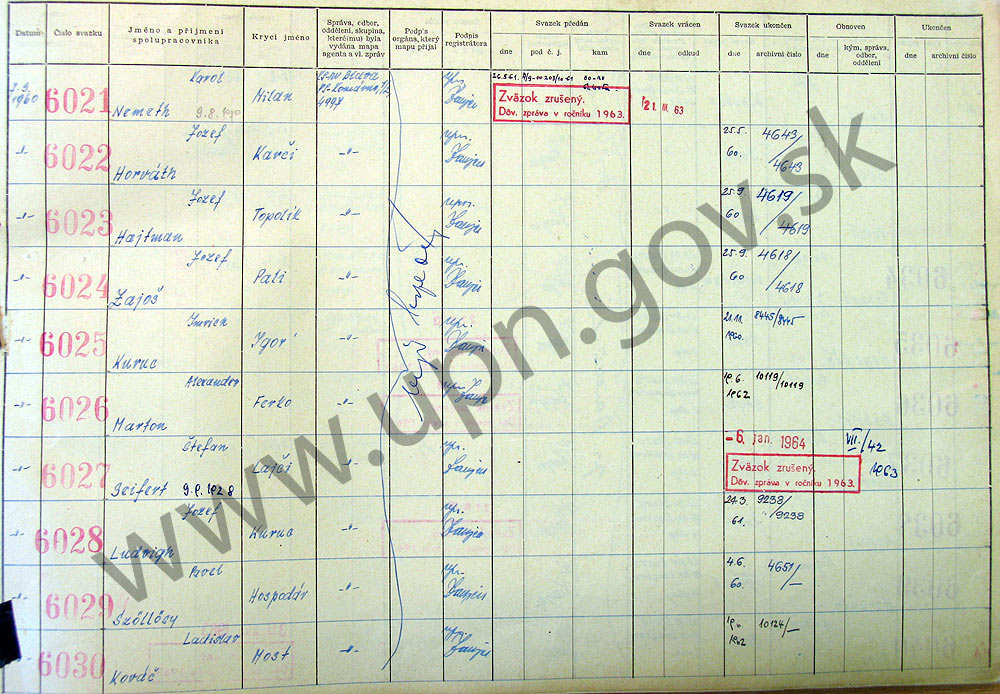 Datum
Číslo svazku
Jméno a příjmení
spolupracovníka
Krycí jméno
Správa, odbor,
oddělení, skupina,
které(mu) byla
vydána mapa
agenta a vl. zpráv
Podpis
orgána, který
mapu přijal
Podpis
registrátora
Svazek předán
dne
pod č. j.
kam
Svazek vrácen
dne
odkud
Svazek ukončen
dne
archivní číslo
Obnoven
dne
kým, správa,
odbor,
oddělení
Ukončen
dne
archivní číslo
1960
6021
Karol
Nemeth 9.8.
Milan
Zväzok zrušený.
Dôv. zpráva v ročníku 1963.
21. III. 63
-"- 6022
Jozef
Horváth
Karči
-"-
25.5.
60.
4643/
4643
-"- 6023
Jozef
Hajtman
Topolík
-"-
25.9.
60
4619/
4619
-"- 6024
Jozef
Zajoš
Pali
-"-
25.9.
60
4618/
4618
-"- 6025
Imrich
Kuruc
Igór
-"-
21.11.
1960.
8445/8445
-"- 6026
Alexander
Marton
Ferko
-"-
19.6.
1962
10119/
10119
-"- 6027
Štefan
Seifert 9.9.1928
Lajči
-"-
-6. jan. 1964
Zväzok zrušený.
Dôv. zpráva v ročníku 1963.
VII./42
1963
-"- 6028
Jozef
Ludvigh
Kuruc
-"-
24.3.
61.
9238/
9238
-"- 6029
Pavel
Szöllösy
Hospodár
-"-
4.6.
60.
4651/-
-"- 6030
Ladislav
Kováč
Most
-"-
1962
10124/-
www.upn.gov.sk